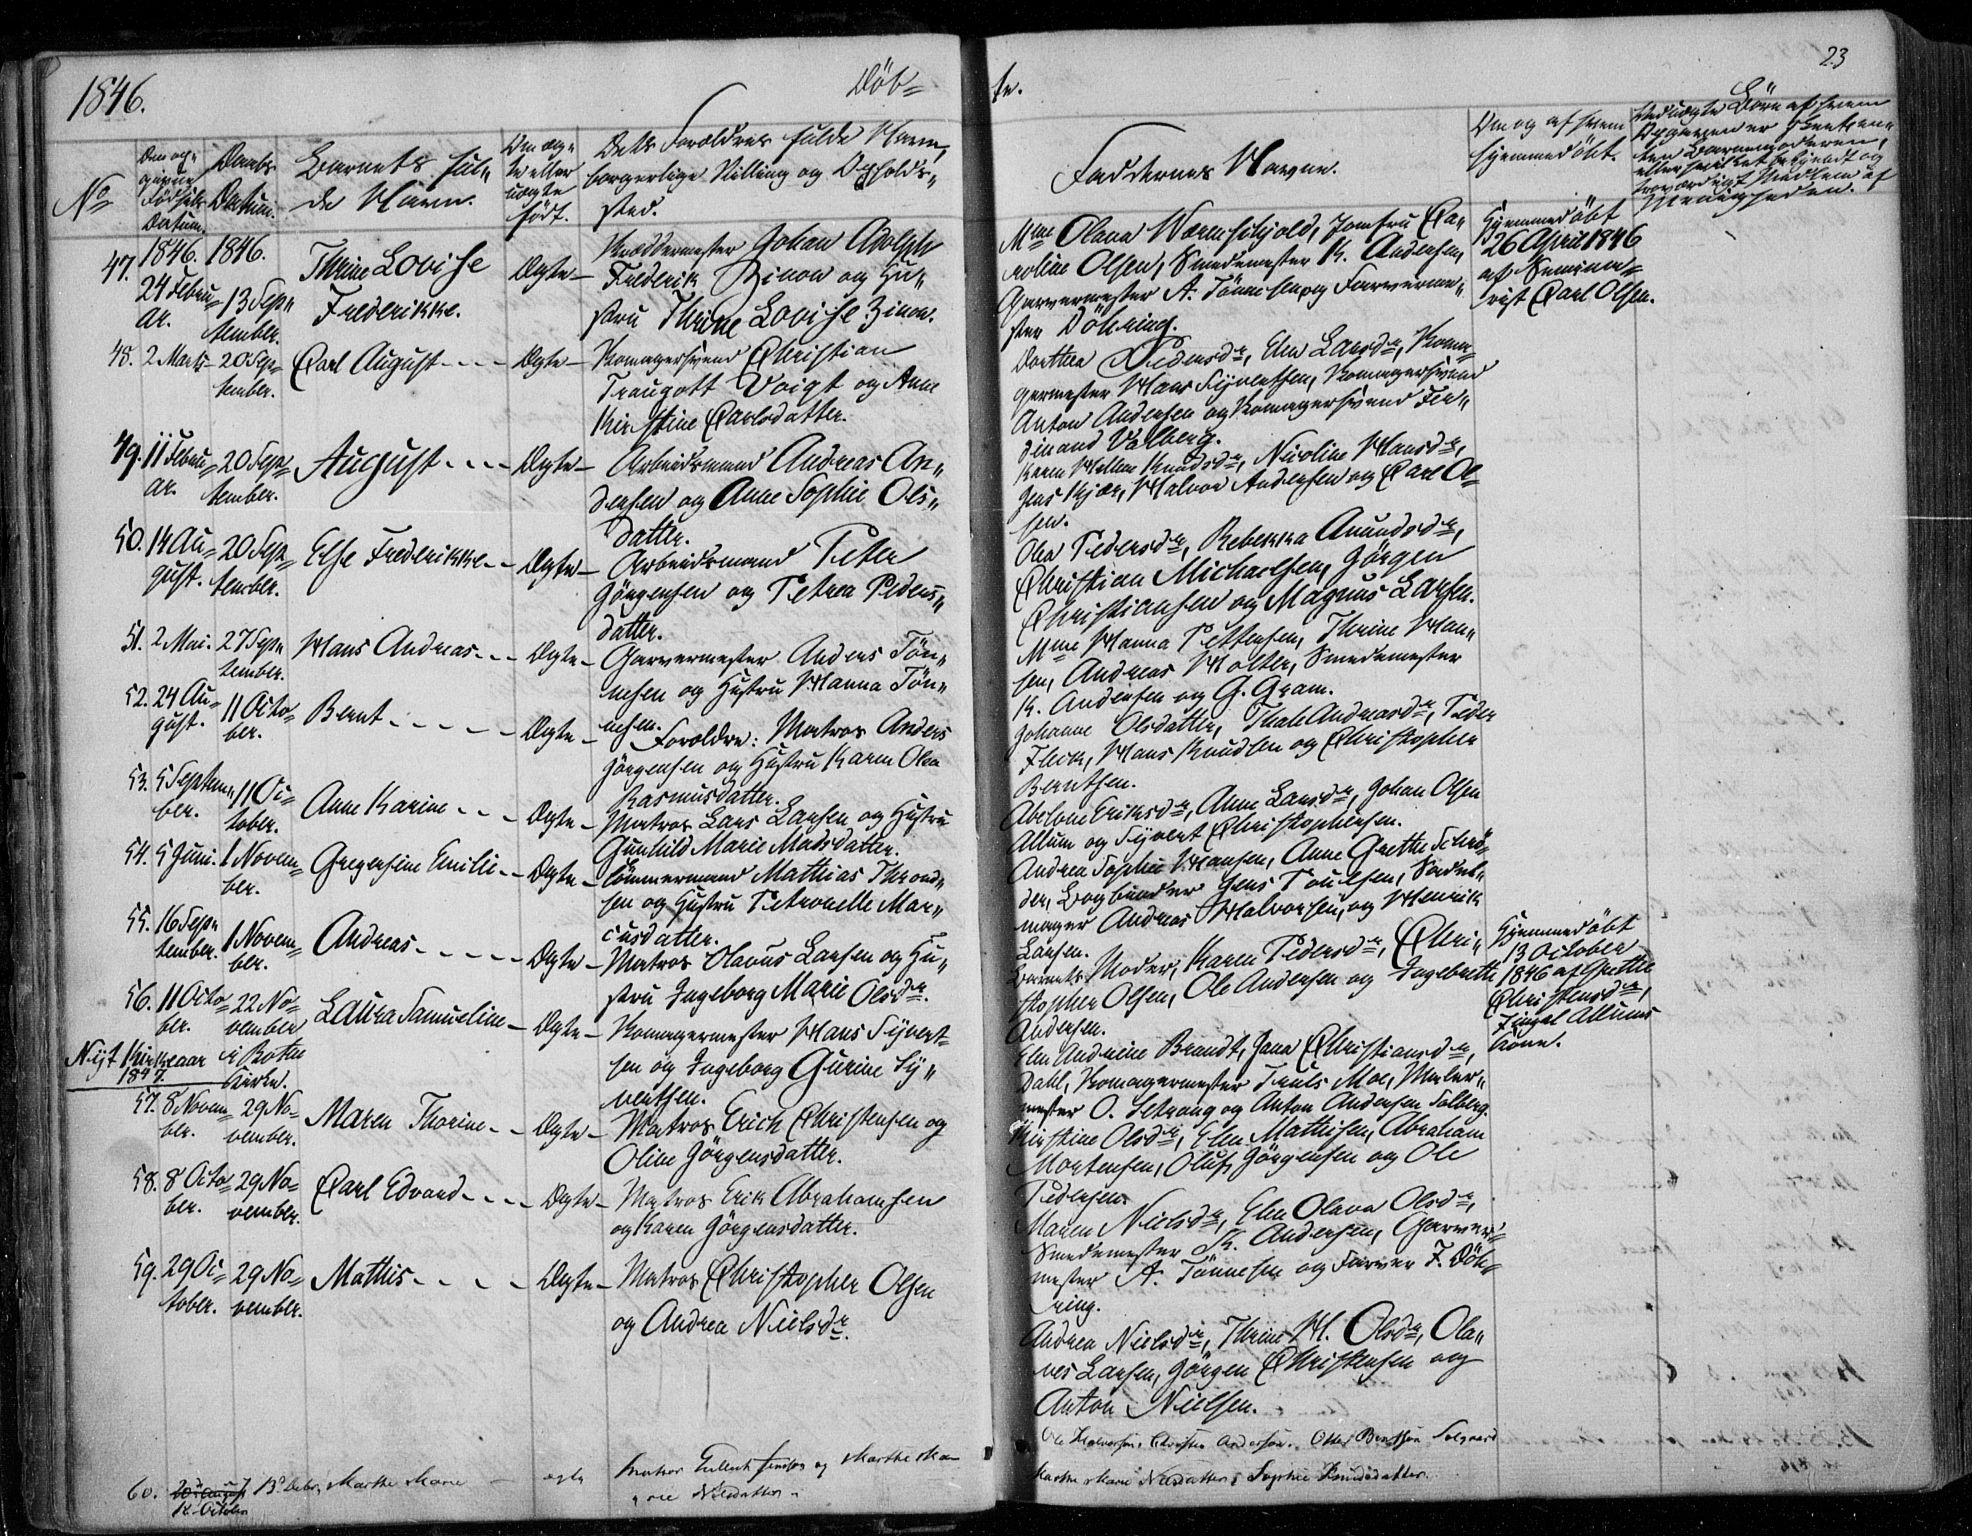 1846.
Döb=
te.
23
No
Den op=
givne
Fødsels
Datum.
Daabs
Datum.
Barnets ful„
de Navn.
Om æg=
te eller
uægte
født.
Dets Forældres fulde Navn,
borgerlige Stilling og Opholds„
sted.
Faddernes Navne.
Om og af hvem
hjemmedöbt.
Ved uægte Börn af hvem
47. 1846. 24 Febru=
ar.
1846. 13 Sep„
tember.
Thrine Lovise
Frederikke.
Ægte
Skræddermester Johan Adolph
Frederik Zinow og Hu„
stru Thrine Lovise Zinow.
Mme Olava Wærenskjold, Jomfru Ca„
roline Olsen, Smedemester K. Andersen,
Garvermester A. Tönnesen og Farverme„
ster Döhring.
Hjemmedöbt
26 April 1846
af Semina=
rist Carl Olsen.
48. 2 Marts
20 Sep=
tember.
Carl August
Ægte
Komagersvend Christian
Traugott Voigt og Anne
Kirstine Carlsdatter.
Dorthea Pedersdr, Elen Larsdr, Koma=
germester Hans Syvertsen, Komagersvend
Anton Andersen og Komagersvend Fer„
dinand Valberg.
49. 11 Febru=
ar.
20 Sep=
tember.
August
Ægte
Arbeidsmand Andreas An„
dersen og Anne Sophie Ols„
datter.
Karen Helene Knudsdr, Nicoline Hansdr,
Jens Kjær, Halvor Andersen og Carl Ol=
sen.
50. 14 Au=
gust.
20 Sep=
tember.
Else Frederikke
Ægte
Arbeidsmand Peter
Jörgensen og Petrea Peders„
datter.
Olea Pedersdr, Rebekka Amundsdr,
Christian Michaelsen, Jörgen
Christiansen og Magnus Larsen.
51. 2 Mai.
27 Sep„
tember.
Hans Andreas
Ægte
Garvermester Anders Tön„
nesen og Hustru Hanna Tön„
nesen.
Mme Hanna Pettersen, Thrine Han„
sen, Andreas Holter, Smedemester
K. Andersen og G. Gram.
52. 24 Au=
gust.
11 Octo=
ber.
Bernt
Ægte
Forældre: Matros Anders
Jörgensen og Hustru Karen Olea
Rasmusdatter.
Johanne Olsdatter, Thale Andreasdr, Peder
Fleck, Hans Knudsen og Christopher
Berntsen.
53. 5 Septem=
ber.
11 Oc=
tober.
Anne Karine
Ægte
Matros Lars Larsen og Hustru
Gunhild Marie Madsdatter.
Abelone Eriksdr, Anne Larsdr, Johan Olsen
Allum og Syvert Christophersen.
54. 5 Juni.
1 Novem=
ber.
Gregersine Emilie
Ægte
Tömmermand Mathias Thrond„
sen og Hustru Petronelle Mar„
cusdatter.
Andrea Sophie Hansen, Anne Grethe Schrö„
der, Bogbinder Jens Poulsen, Sadel„
mager Andreas Halvorsen, og Henrik
Larsen.
55. 16 Sep„
tember.
1 Novem=
ber.
Andreas
Ægte
Matros Olavus Larsen og Hu„
stru Ingeborg Marie Olsdr.
Barnets Moder, Karen Pedersdr, Chri„
stopher Olsen, Ole Andersen og Ingebreth
Andersen.
Hjemmedöbt
13 October
1846 af Grethe
Christensdr,
Allums
Kone.
56. 11 Octo
ber.
22 No=
vember
i Botne
Kirke.
Laura Samueline
Ægte
Komagermester Hans Syvert=
sen og Ingeborg Gurine Sy„
vertsen.
Elen Andrine Brandt, Jana Christiansdr,
Dahl, Komagermester Truls Moe, Maler„
mester O. Setrang og Anton Andersen Solberg.
Nyt Kirkeaar
1847.
57. 8 Novem
ber.
29 No=
vember.
Maren Thorine
Ægte
Matros Erich Christensen og
Oline Jörgensdatter.
Kirstine Olsdr, Elen Mathisen, Abraham
Mortensen, Oluf Jörgensen og Ole
Pedersen.
58. 8 Octo=
ber.
29 No=
vember.
Carl Edvard
Ægte
Matros Erik Abrahamsen
og Karen Jörgensdatter.
Maren Nielsdr, Elen Olava Olsdr,
Smedemester K. Andersen, Garver„
mester A. Tönnesen og Farver F. Döh=
ring.
59. 29 Oc=
tober.
29 No=
vember.
Mathis
Ægte
Matros Christopher Olsen
og Andrea Nielsdr.
Andrea Nielsdr, Thrine H. Olsdr, Ola„
ves Larsen, Jörgen Christensen og
Anton Nielsen.
60. 20 August
12 October
13 Decbr,
Marthe Marie
ægte
Matros Jensen og Marthe Ma
rie Nilsdatter
Ole Halvorsen, Christen Andersen, Bentsen Solgaard
Marthe Marie Nilsdatter, Sophie Knudsdatter.